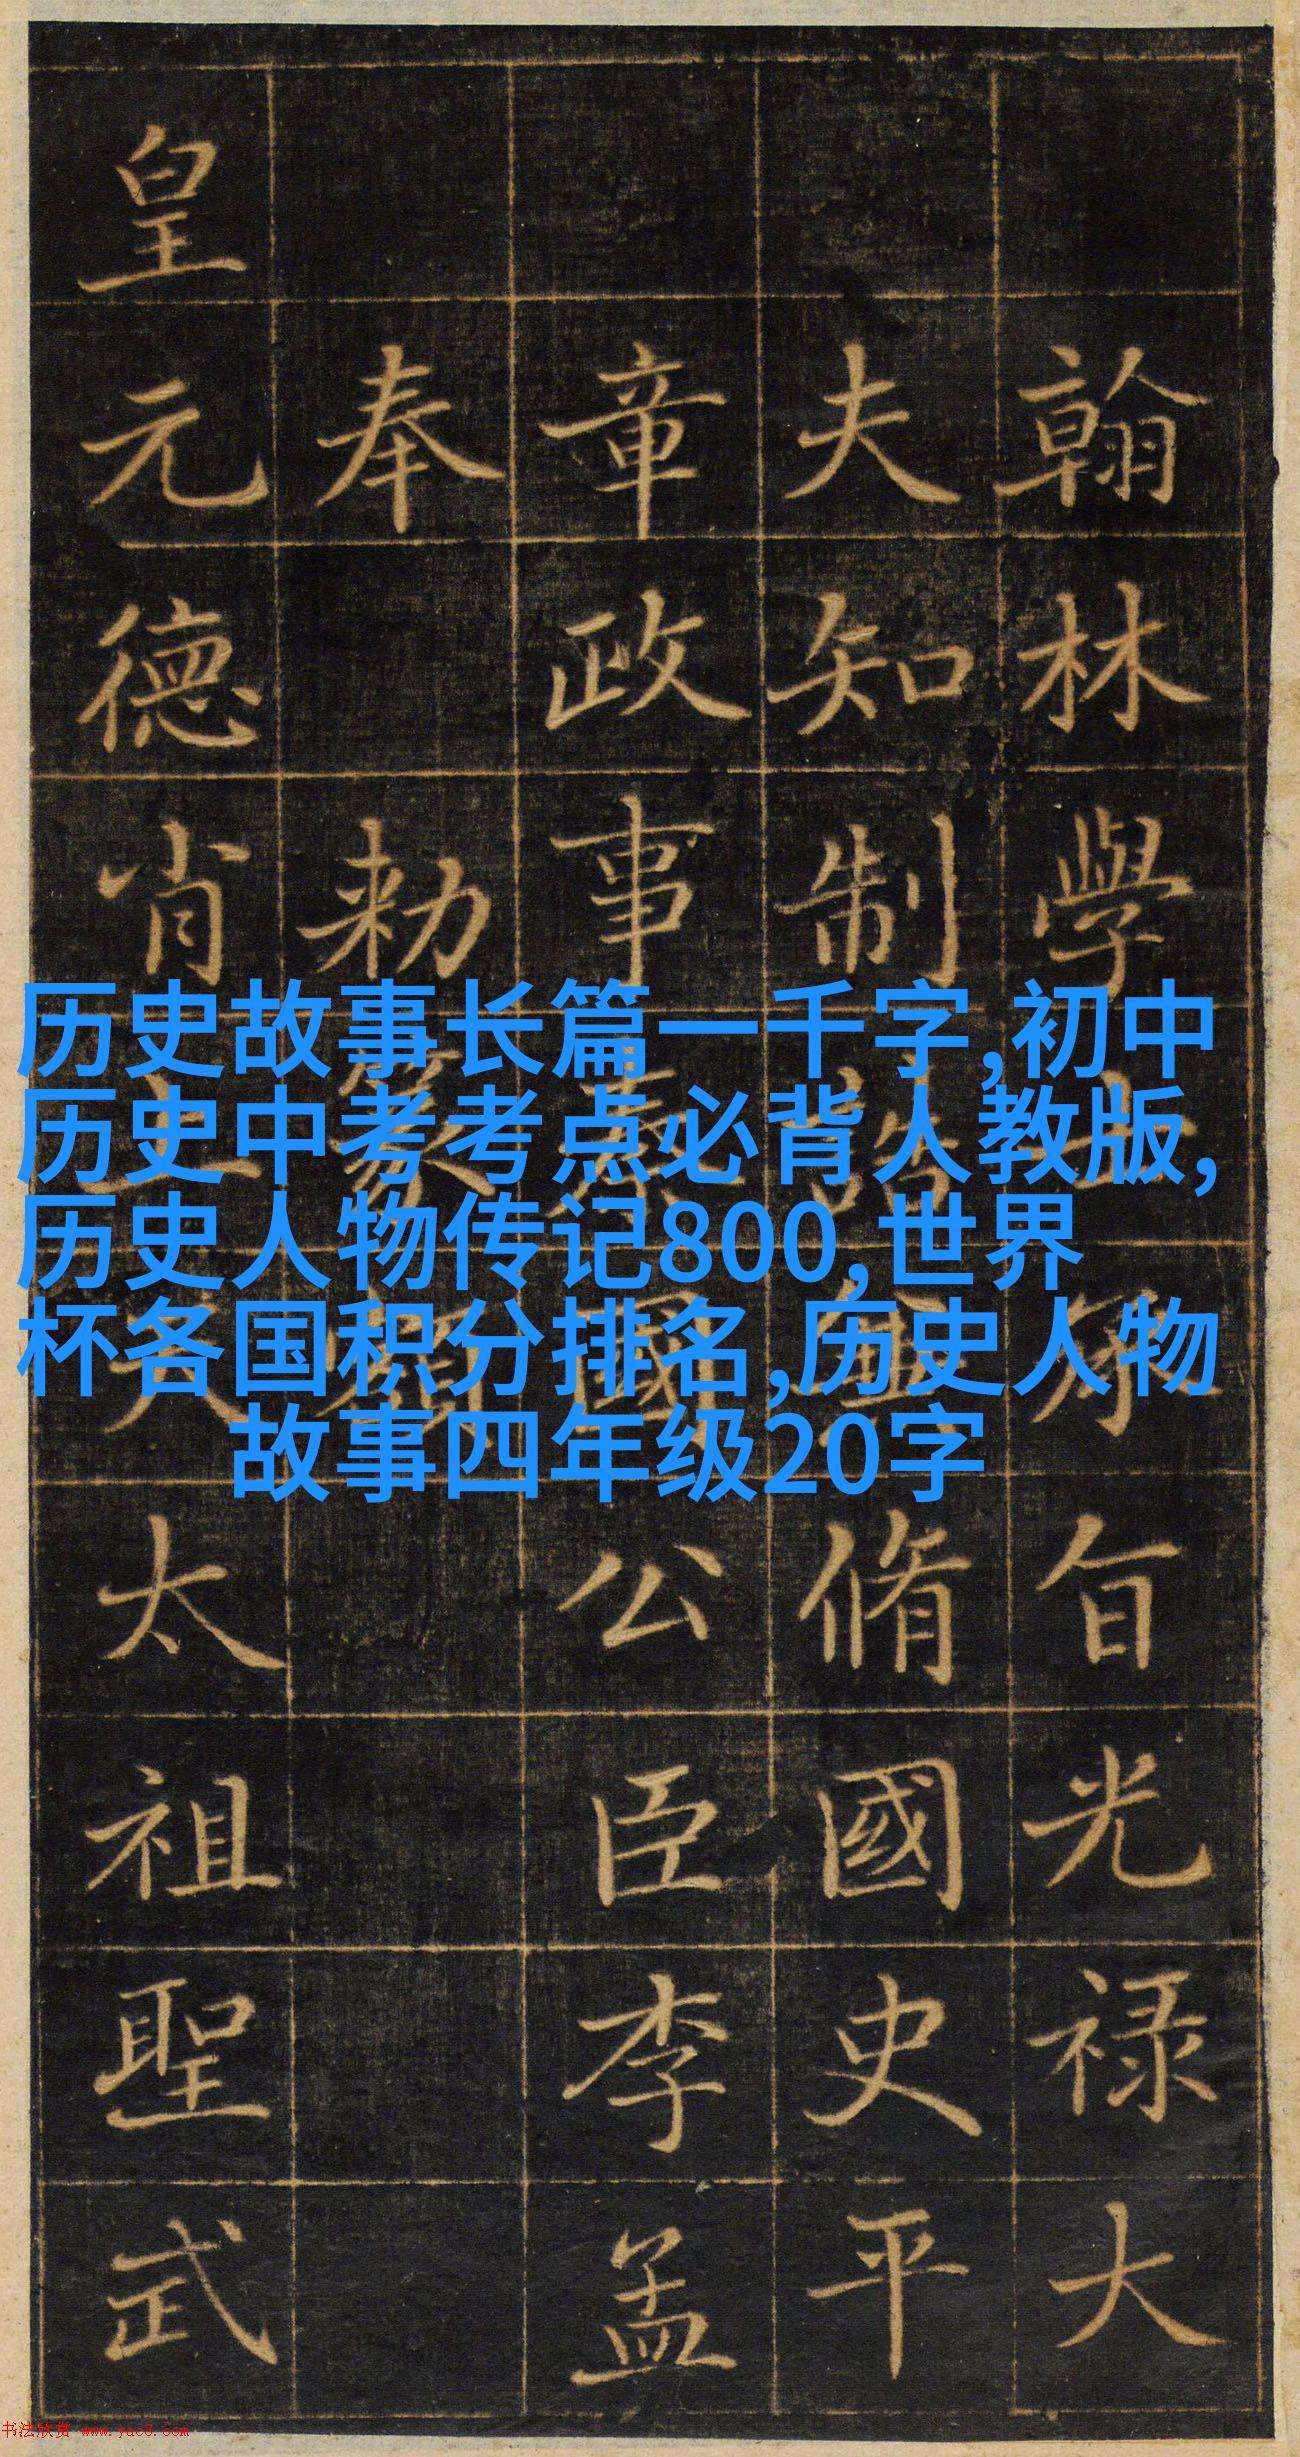 翰林學士承旨光祿大
夫知制誥兼脩國史平
章政事秦國公臣李孟
奉勑篆額
皇元德肖上天太祖聖武
历史故事长篇一千字,初中
历史中考考点必背人教版,
历史人物传记800,世界
杯各国积分排名,历史人物
故事四年级20字
书法欣赏 www.yac8.com